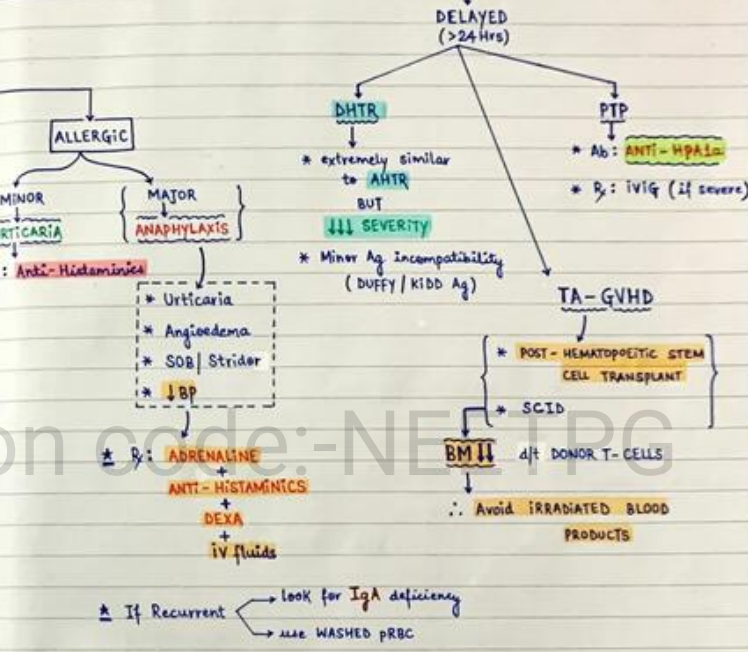 DELAYED
(>24 Hrs)
ALLERGIC
MINOR
URTICARIA
: Anti-Histaminics
MAJOR
ANAPHYLAXIS
* Urticaria
* Angioedema
* SOB | Stridor
* ↓BP
* Rx: ADRENALINE
+
ANTI-HISTAMINICS
+
DEXA
+
iV fluids
* If Recurrent
→ look for IgA deficiency
→ use WASHED pRBC
DHTR
* extremely similar
to AHTR
BUT
↓↓↓ SEVERITY
* Minor Ag incompatibility
(DUFFY / KIDD Ag)
PTP
* Ab: ANTI-HPA1a
* Rx: iViG (if severe)
TA-GVHD
* POST-HEMATOPOEITIC STEM
CELL TRANSPLANT
* SCID
BM ↓↓ d/t DONOR T-CELLS
∴ Avoid iRRADIATED BLOOD
PRODUCTS
on code:-NEETPG